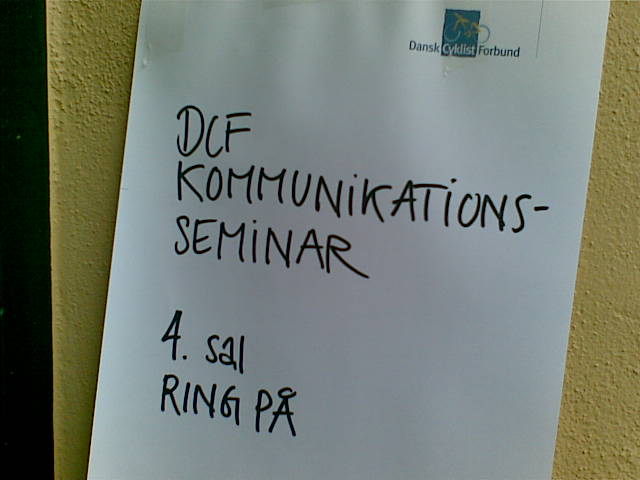 Dansk Cyklist Forbund
DCF
KOMMUNIKATIONS-
SEMINAR
4. sal
RING PÅ